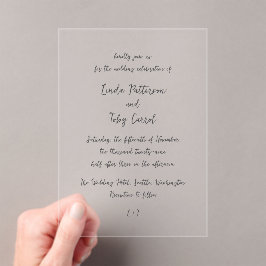 kindly join us
for the wedding celebration of
Linda Patterson
and
Toby Carrol
Saturday, the fifteenth of November
two thousand twenty-nine
half after three in the afternoon
The Wedding Hotel, Seattle, Washington
Reception to follow